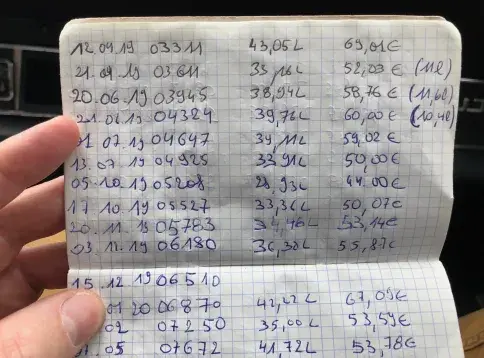 12 09 19 03311 43,05L 69,01€
21.04.19 03611 33,16L 52,03€ (11l)
20.06.19 03945 38,94L 58,76€ (11,6l)
06.19 04324 39,76L 60,00€ (10,4l)
01 07.19 04647 39,11L 59,02€
13.07.19 04925 33,91L 50,00€
05.10.19 05208 28,93L 44.00€
17.10.19 05527 33,36L 50,07€
20.11.19 05783 34,46L 53,14€
03.12.19 06180 36,38L 55,87€
15.12 19 06510
01 20 06870 42,22L 67,09€
02 07250 35,00L 53,59€
05 07672 41,72L 53,78€